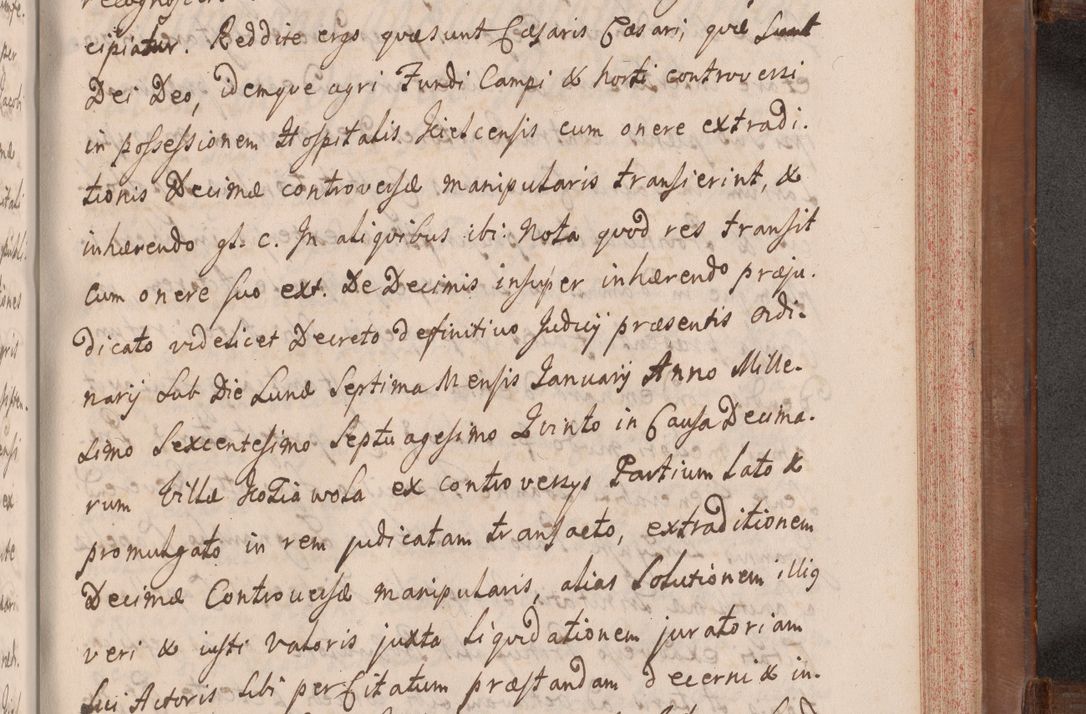 cipiatur. Reddite ergo quæ sunt Cæsaris Cæsari, quæ sunt
Dei Deo, idemque agri Fundi Campi & horti controversi
in possessionem Hospitalis Kielcensis cum onere extradi-
tionis Decimæ controversæ manipularis transierint, &
inhærendo gl. c. In aliquibus ibi: Nota quod res transit
cum onere suo ext. De Decimis insuper inhærendo præju-
dicato videlicet Decreto definitivo Judicij præsentis ordi-
narij sub Die Lunæ Septima Mensis Januarij Anno Mille-
simo Sexcentesimo Septuagesimo Quinto in Causa Decima-
rum Villæ Kozia wola ex controversijs Partium lato &
promulgato in rem judicatam transacto, extraditionem
Decimæ Controversæ manipularis, alias solutionem illius
veri & iusti valoris juxta liquidationem juratoriam
sui Actoris sibi per Citatum præstandam decerni & in-